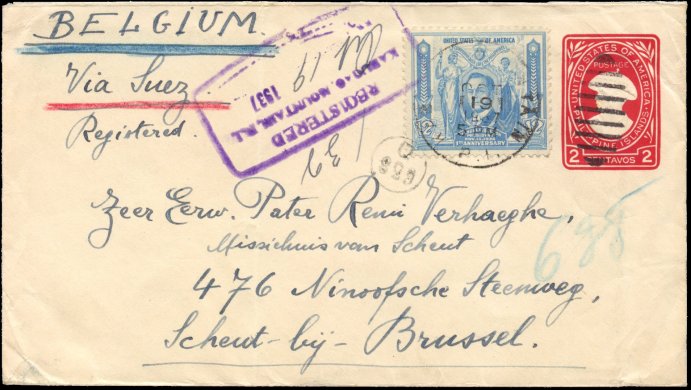 BELGIUM.
Via Suez
Registered.
REGISTERED
MOUNTAIN, P.I.
1937
Oct 19
UNITED STATES OF AMERICA
1ST ANNIVERSARY
19
P. I.
638
UNITED STATES OF AMERICA
POSTAGE
PHILIPPINE ISLANDS
2 CENTAVOS 2
Zeer Eerw. Pater Remi Verhaeghe,
Missiehuis van Scheut
638
476 Ninoofsche Steenweg,
Scheut-bij-Brussel.